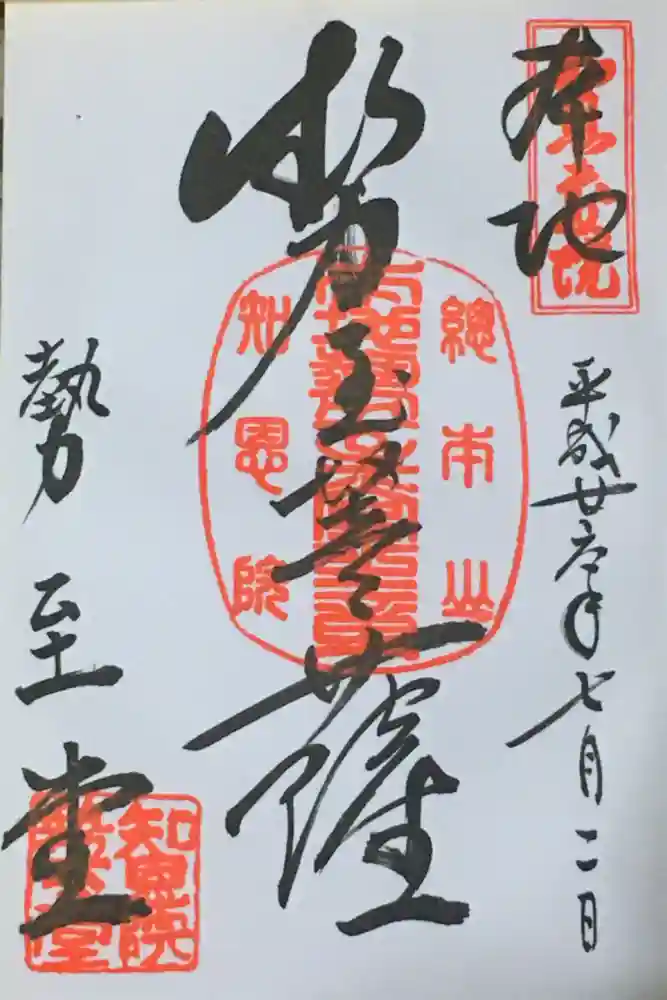 本地
平成廿六年七月二日
勢至菩薩
總本山
知恩院
勢至堂
知恩院
勢至堂